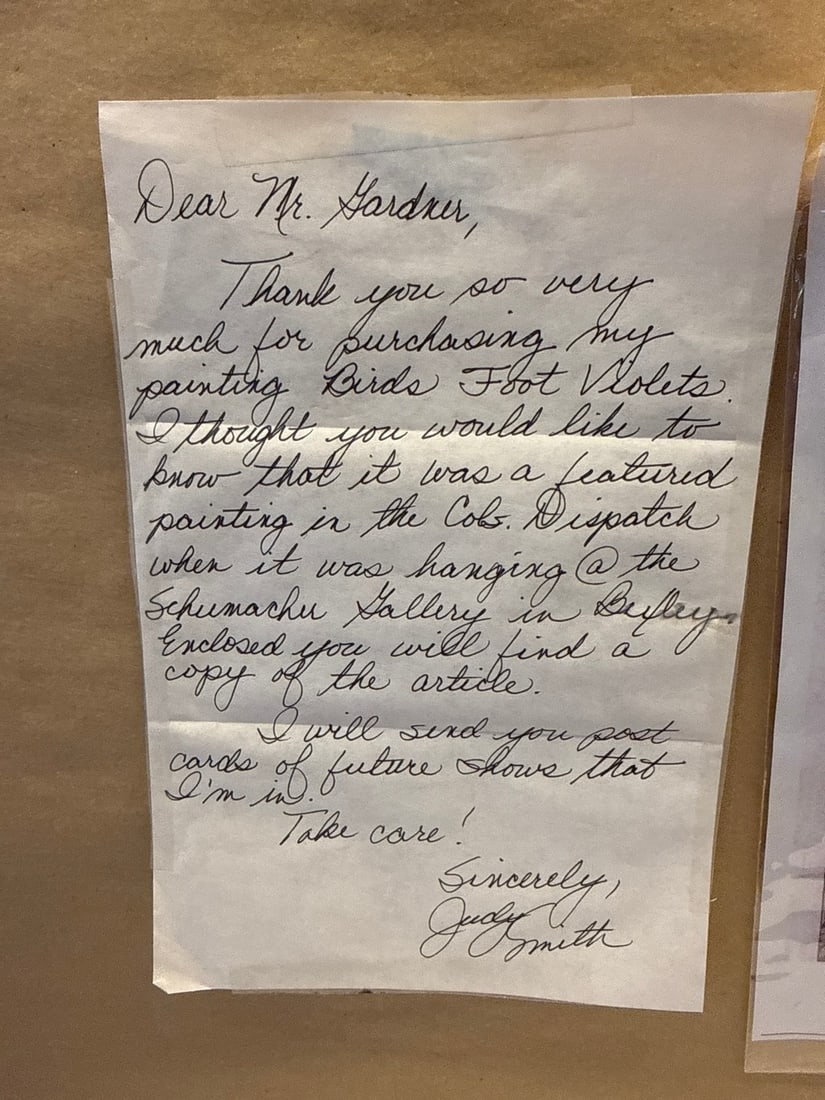 Dear Mr. Gardner,
Thank you so very
much for purchasing my
painting Birds Foot Violets.
I thought you would like to
know that it was a featured
painting in the Cols. Dispatch
when it was hanging @ the
Schumacher Gallery in Bexley.
Enclosed you will find a
copy of the article.
I will send you post
cards of future shows that
I'm in.
Take care!
Sincerely,
Judy
Smith